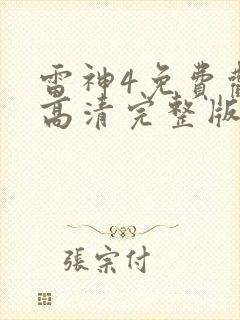 雷神4免費觀
高清完整版
張宗付